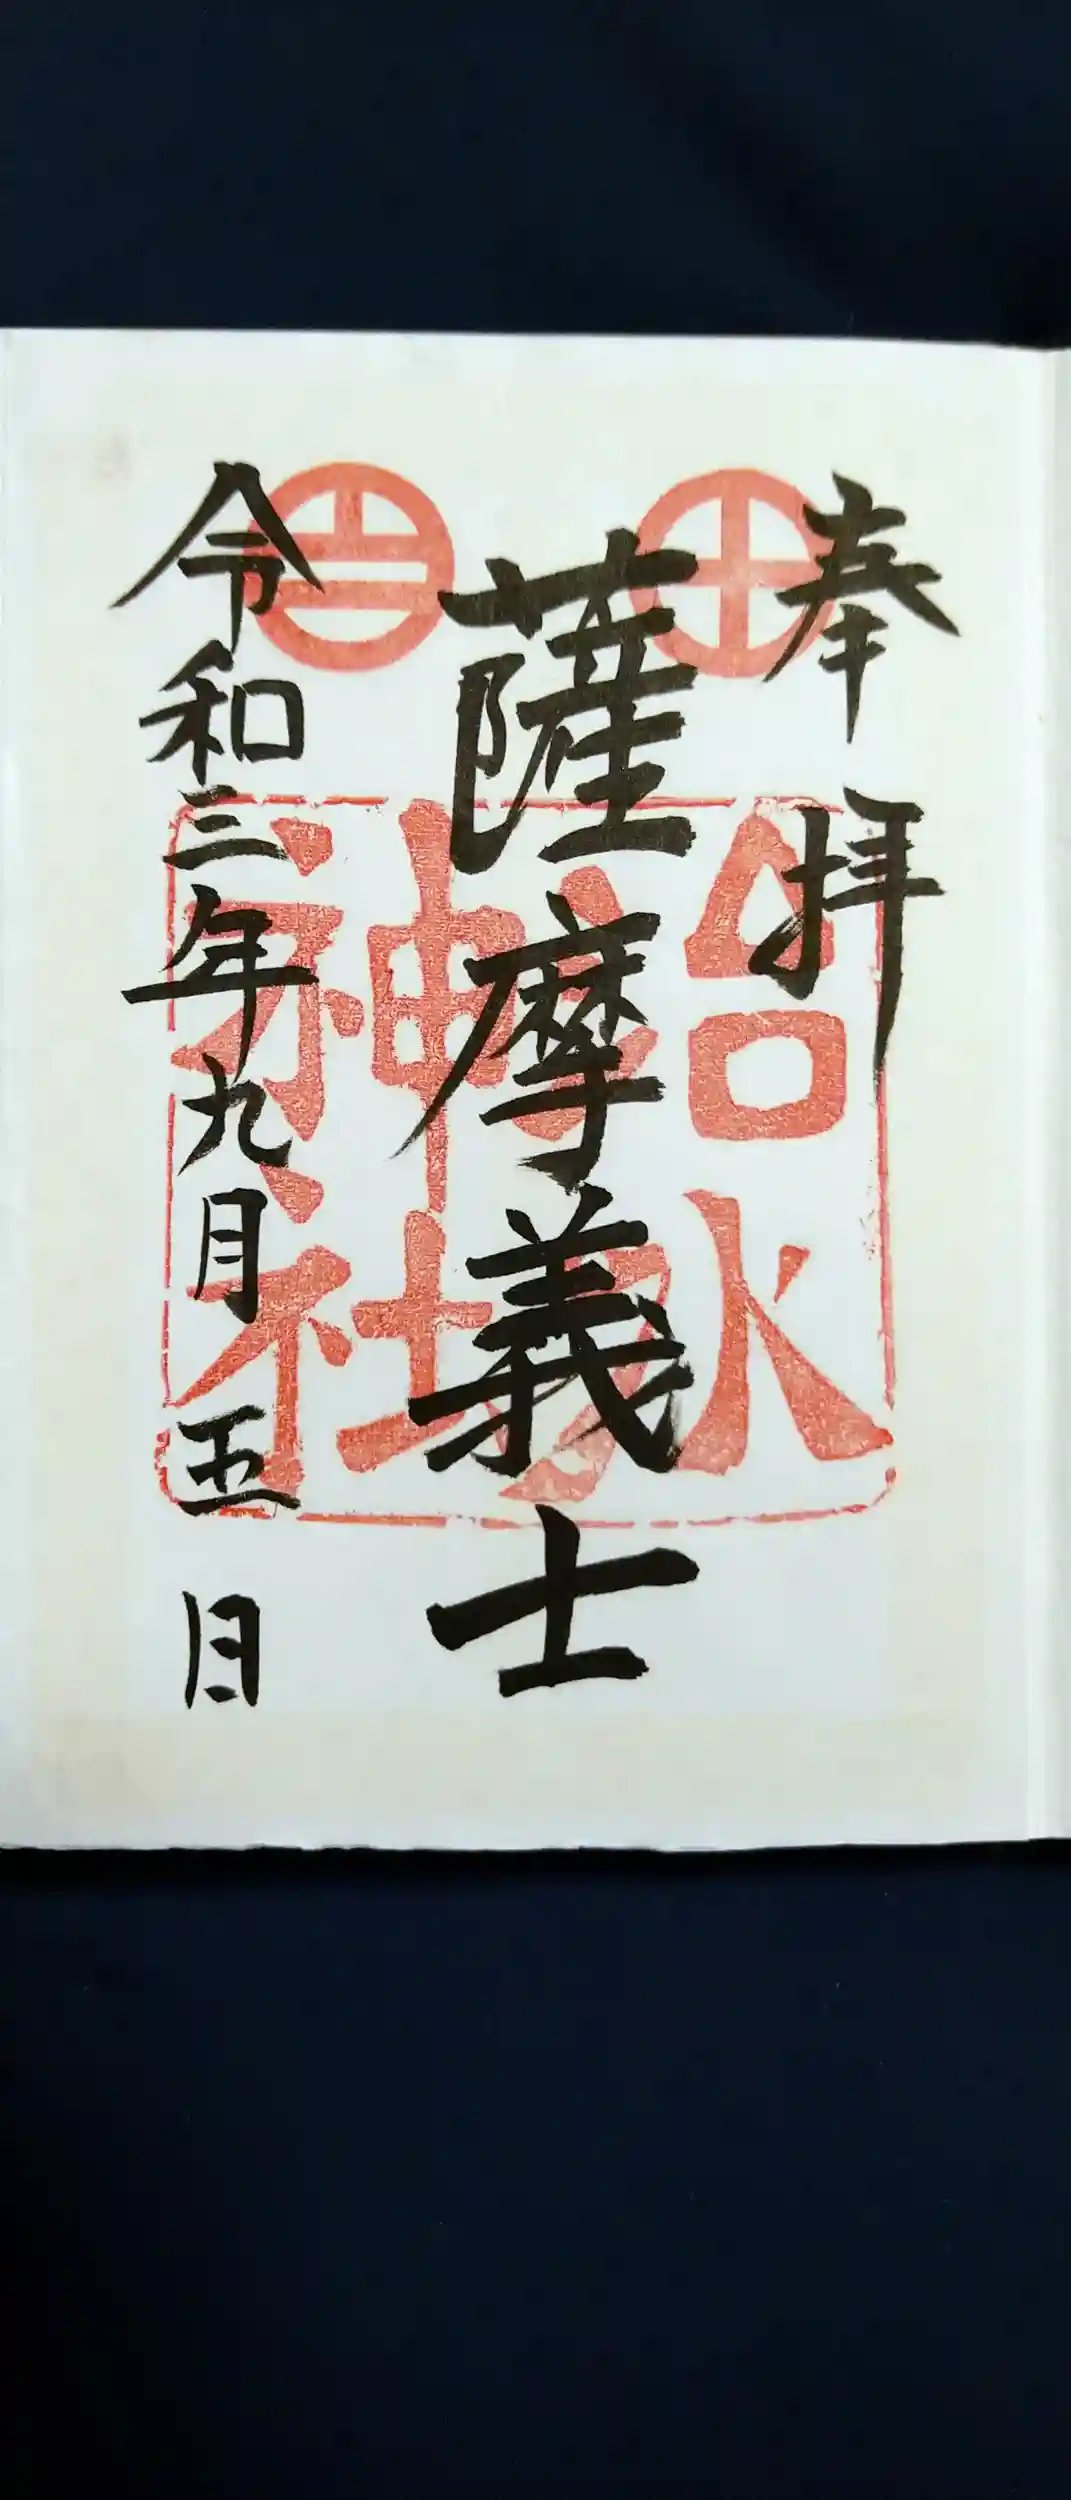 奉拝
薩摩義士
令和三年九月五日
治水
神社